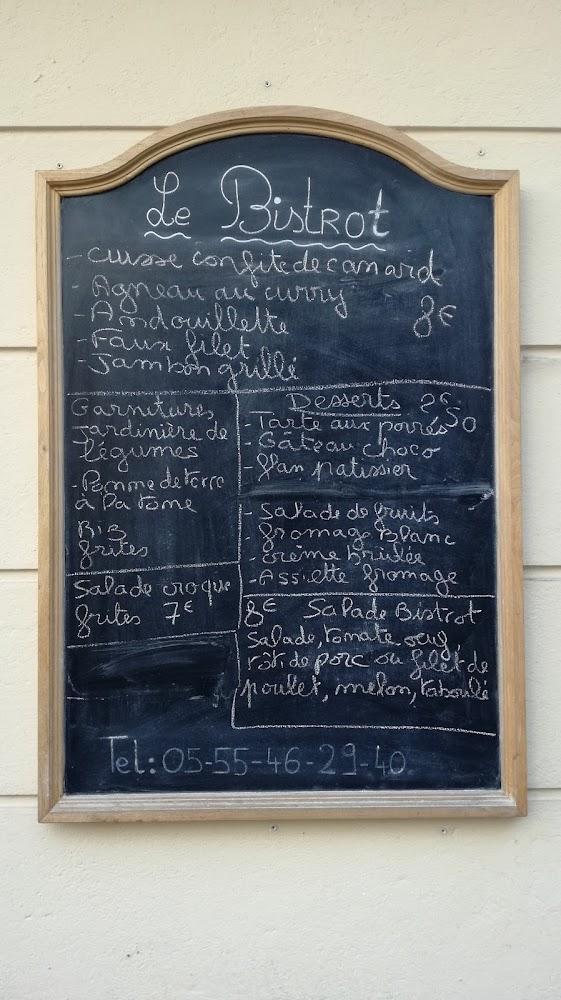 Le Bistrot
- cuisse confite de canard
- Agneau au curry
8€
- Andouillette
- Faux filet
- Jambon grillé
Garnitures
jardinière de
légumes
- Pomme de terre
à la tome
Riz
frites
Salade croque
frites 7€
Desserts 2€50
- Tarte aux poires
- Gâteau choco
- flan patissier
- Salade de fruits
- fromage blanc
- crème brulée
- Assiette fromage
8€ Salade Bistrot
salade, tomate oeuf,
rôti de porc ou filet de
poulet, melon, taboulé
Tel: 05-55-46-29-40